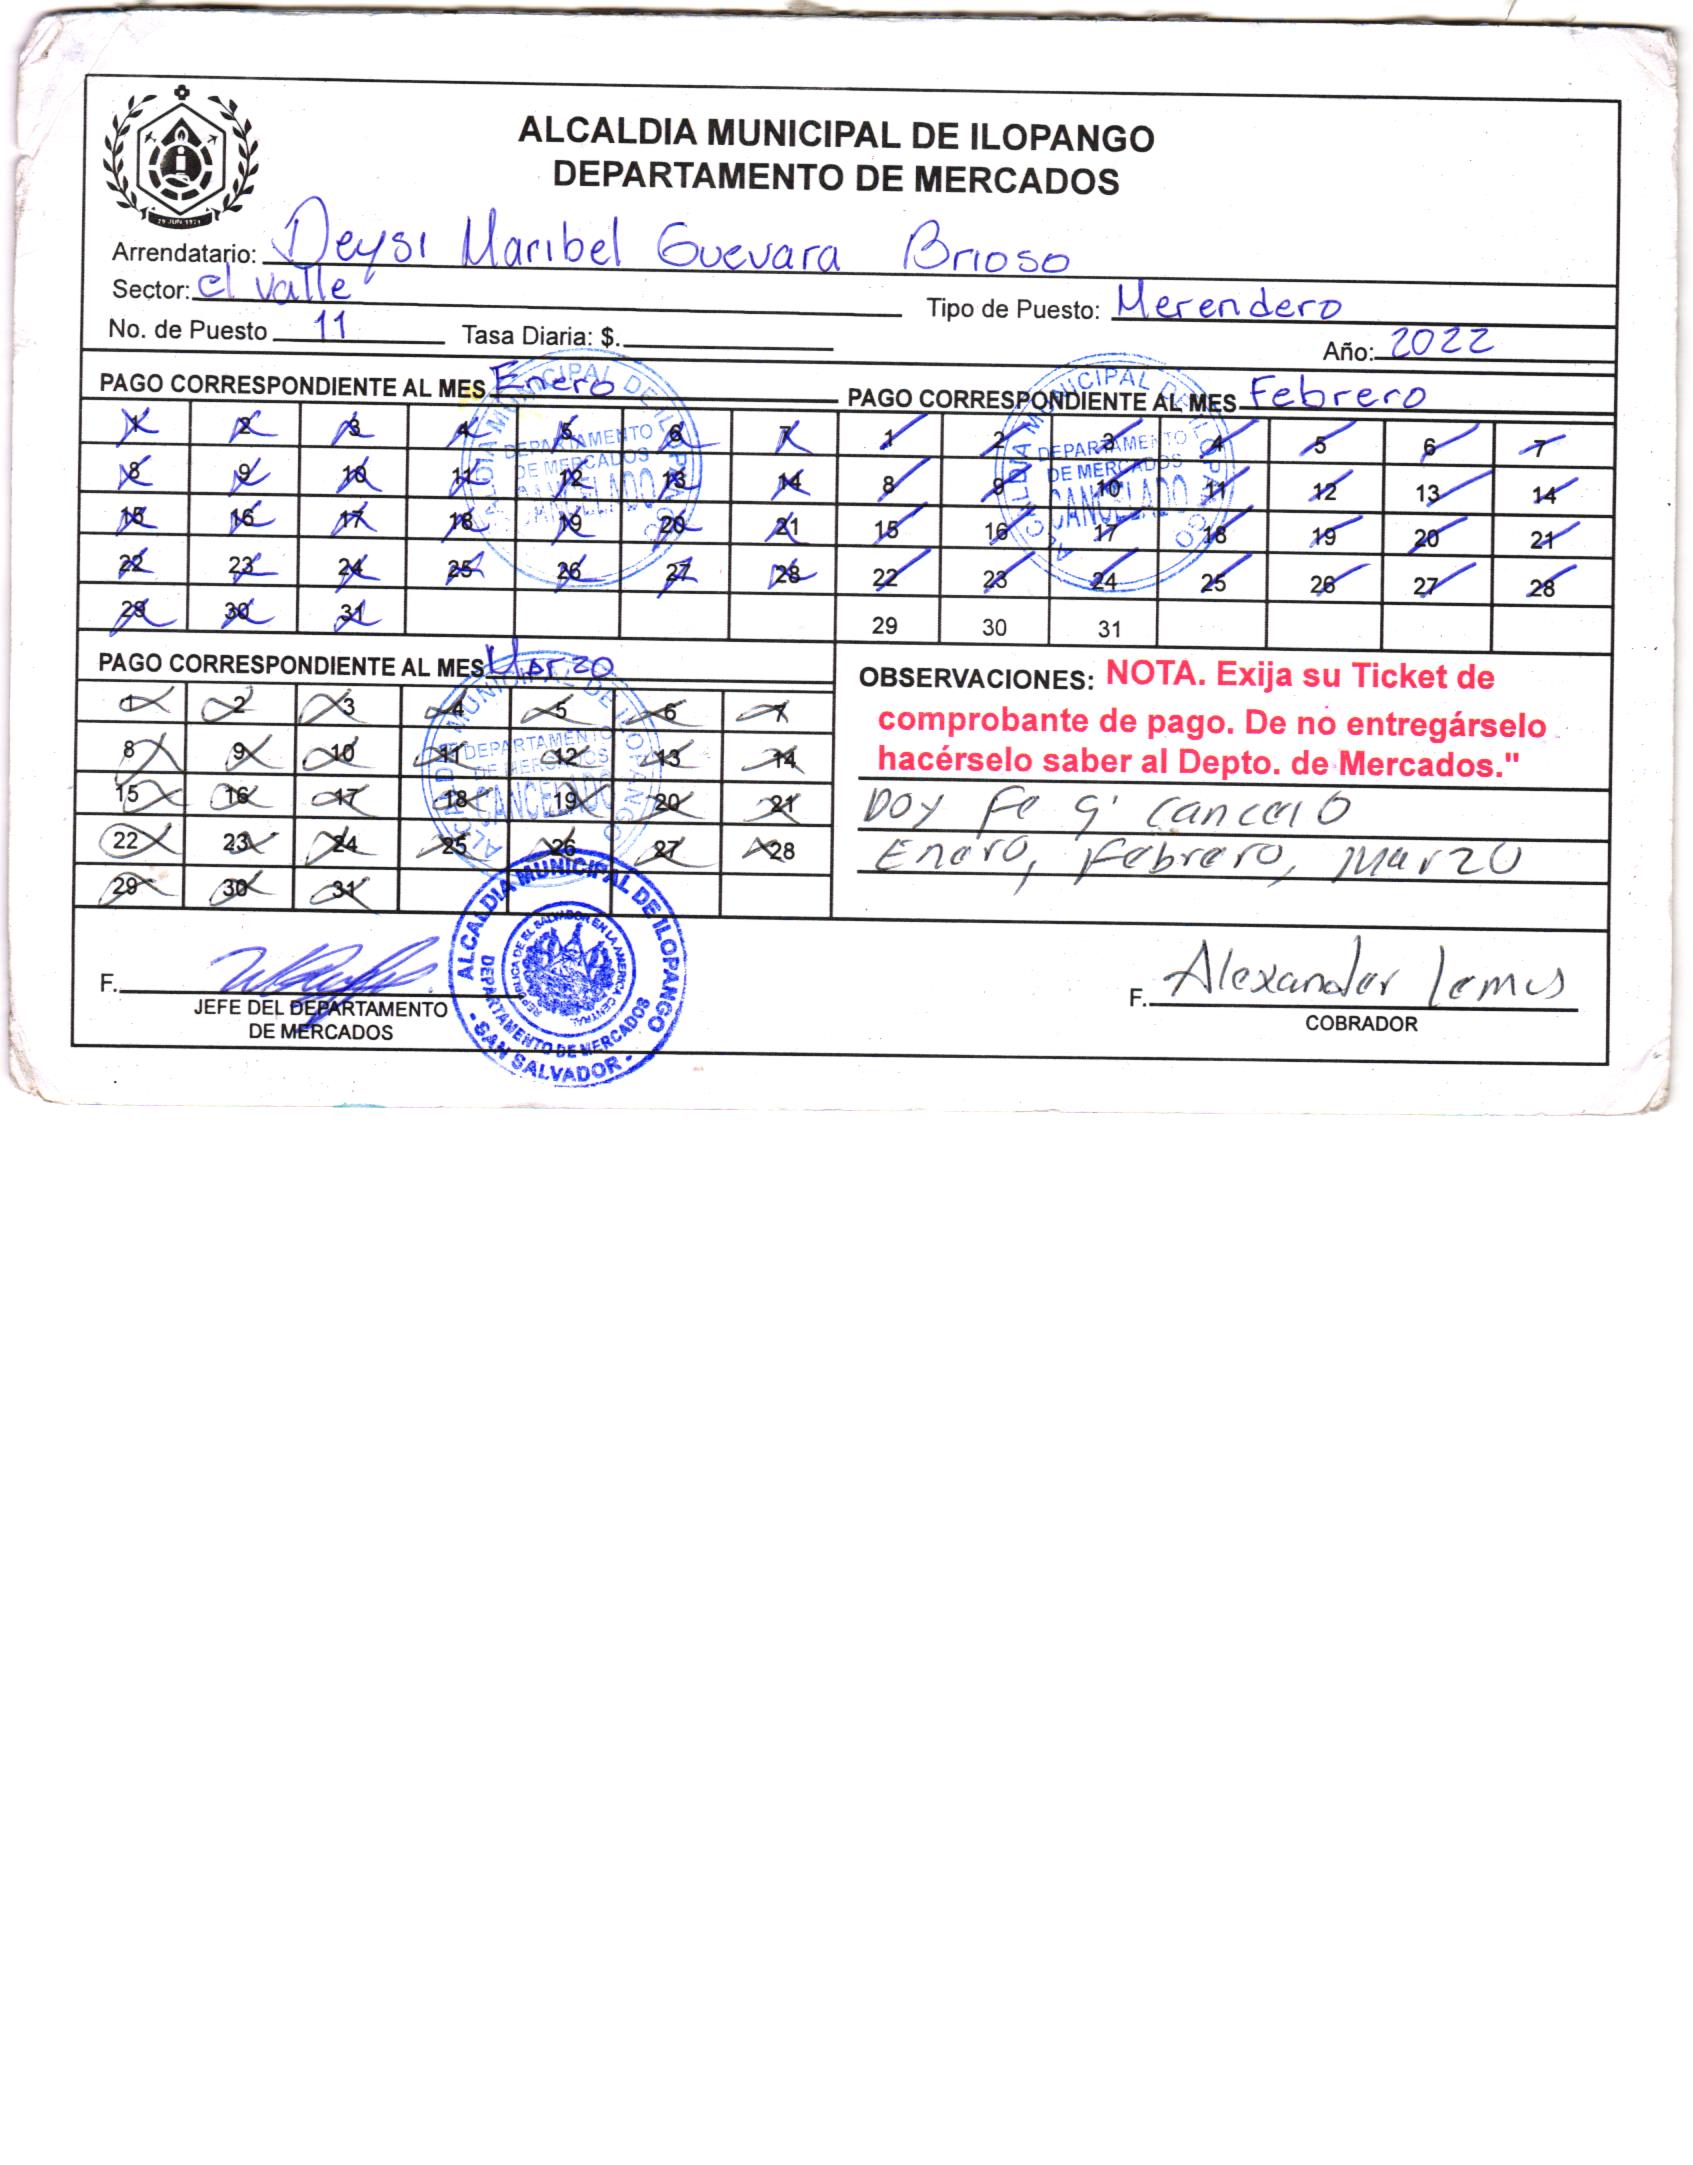 ALCALDIA MUNICIPAL DE ILOPANGO
DEPARTAMENTO DE MERCADOS
29 JUN 1971
Arrendatario: Deysi Maribel Guevara Brioso
Sector: el valle
Tipo de Puesto: Merendero
No. de Puesto 11 Tasa Diaria: $.
Año: 2022
PAGO CORRESPONDIENTE AL MES Enero
1 2 3 4 5 6 7
8 9 10 11 12 13 14
15 16 17 18 19 20 21
22 23 24 25 26 27 28
29 30 31
ALCALDIA MUNICIPAL DE ILOPANGO
DEPARTAMENTO
DE MERCADOS
CANCELADO
PAGO CORRESPONDIENTE AL MES Febrero
1 2 3 4 5 6 7
8 9 10 11 12 13 14
15 16 17 18 19 20 21
22 23 24 25 26 27 28
29 30 31
ALCALDIA MUNICIPAL DE ILOPANGO
DEPARTAMENTO
DE MERCADOS
CANCELADO
PAGO CORRESPONDIENTE AL MES Marzo
1 2 3 4 5 6 7
8 9 10 11 12 13 14
15 16 17 18 19 20 21
22 23 24 25 26 27 28
29 30 31
ALCALDIA MUNICIPAL DE ILOPANGO
DEPARTAMENTO
DE MERCADOS
CANCELADO
OBSERVACIONES: NOTA. Exija su Ticket de
comprobante de pago. De no entregárselo
hacérselo saber al Depto. de Mercados."
Doy fe q' cancelo
Enero, Febrero, Marzo
F.
JEFE DEL DEPARTAMENTO
DE MERCADOS
ALCALDIA MUNICIPAL DE ILOPANGO
DEPARTAMENTO DE MERCADOS
- SAN SALVADOR -
REPUBLICA DE EL SALVADOR EN LA AMERICA CENTRAL
F. Alexander Lemus
COBRADOR